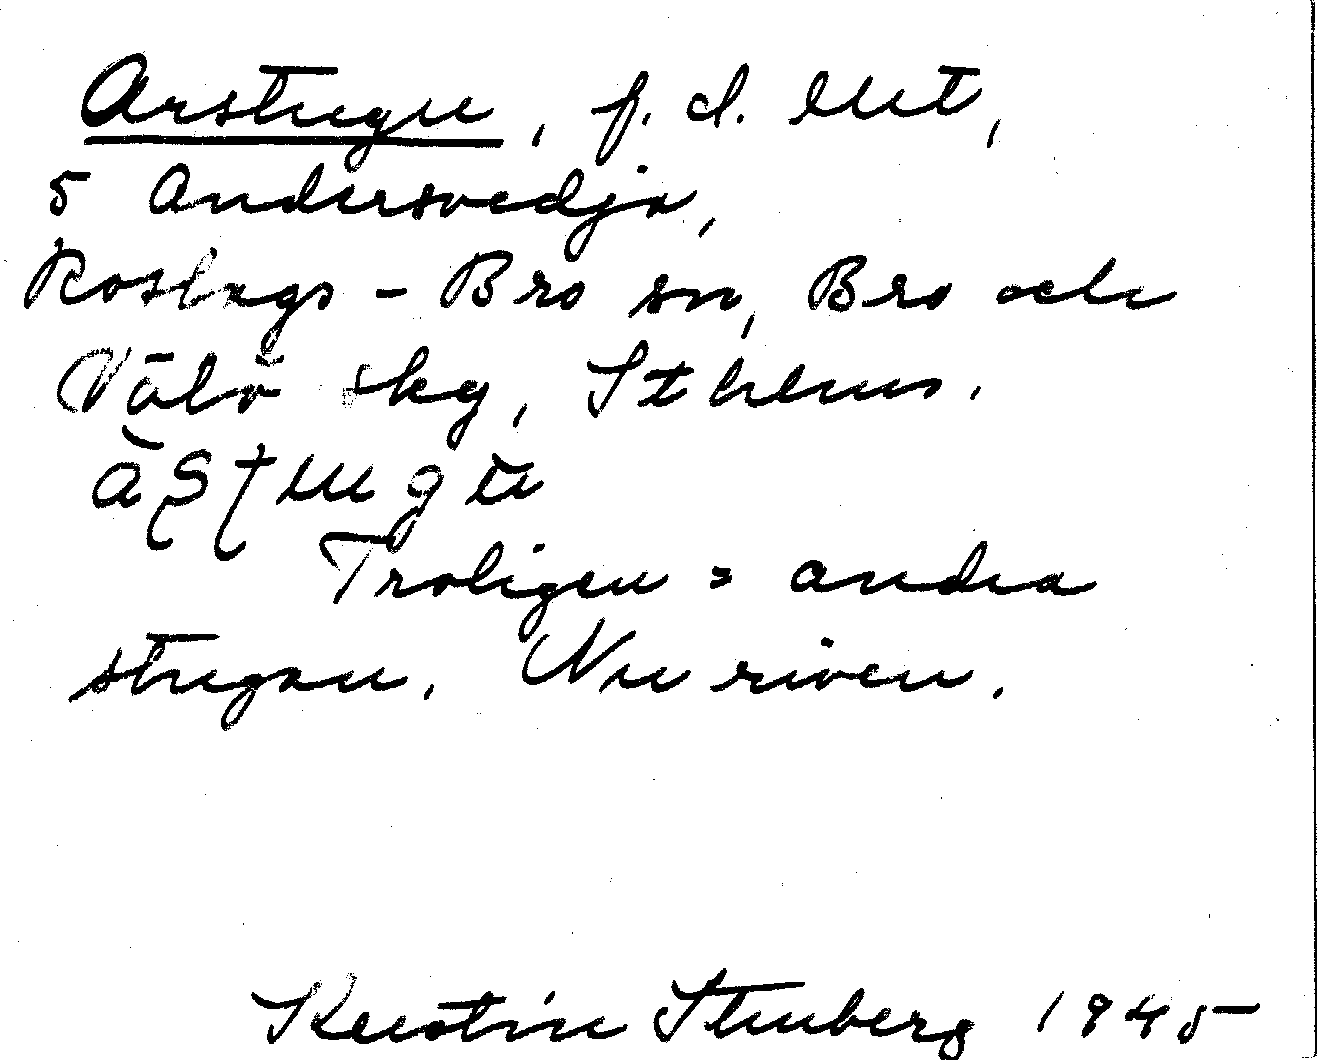 Arstugu, f.d. lht,
5 Andersvedja,
Roslags-Bro sn, Bro och
Vätö sky, Sthlms.
Troligen = andra
stugan. Nu riven.
Kerstin Stenberg 1945